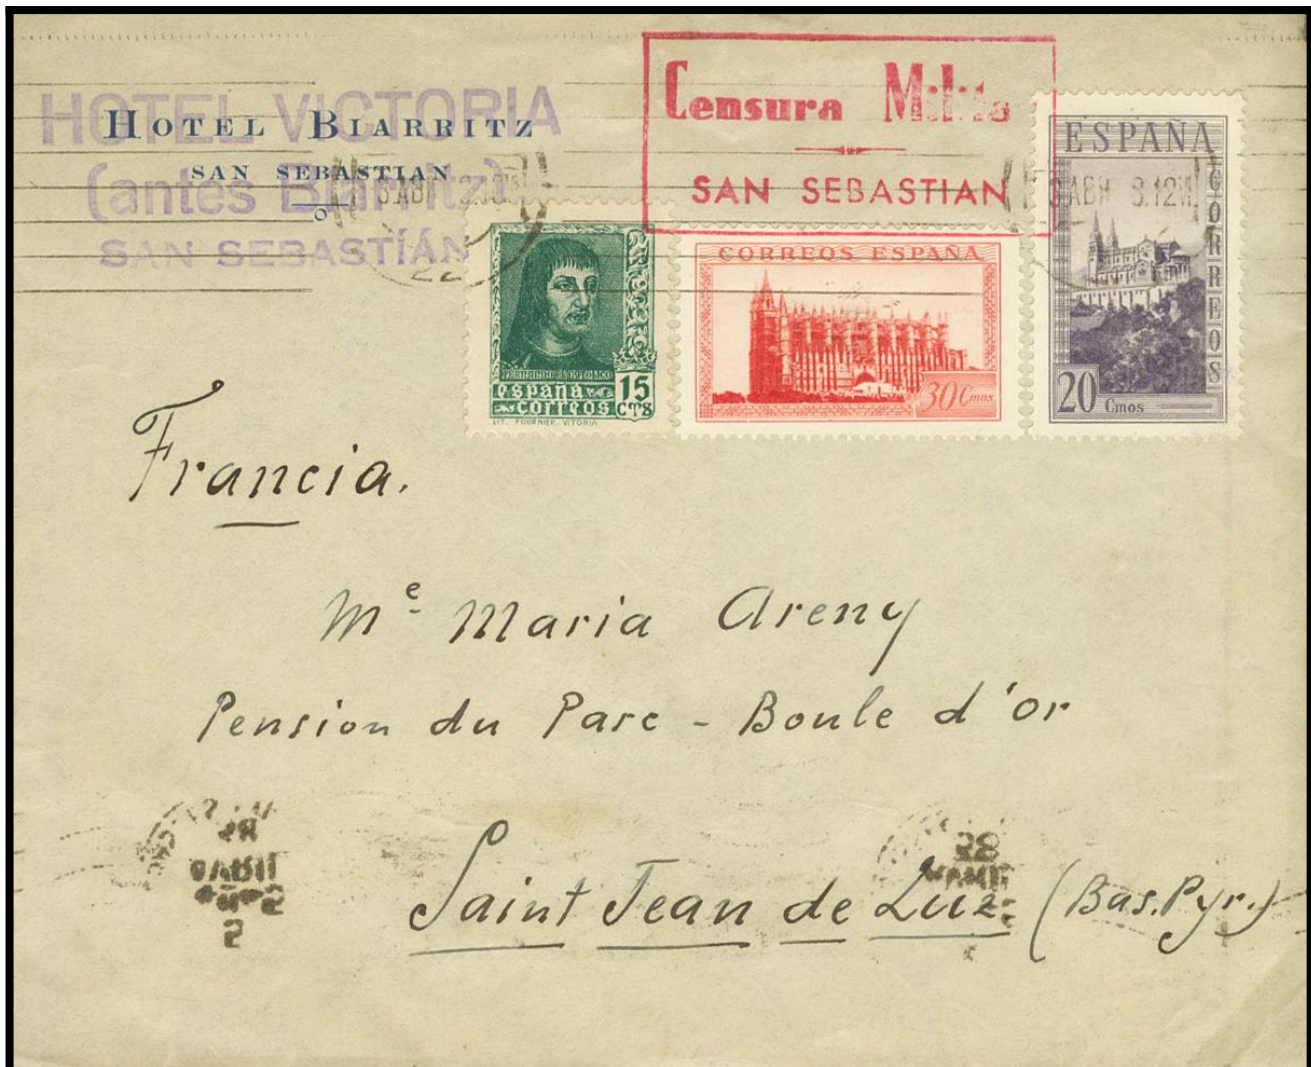 HOTEL VICTORIA
(antes Biarritz)
SAN SEBASTIÁN
HOTEL BIARRITZ
SAN SEBASTIAN
Censura
SAN SEBASTIAN
ESPAÑA
CORREOS
20 Cmos
CORREOS ESPAÑA
30 Cmos
españa
correos
15
CTS
LIT. FOURNIER. VITORIA
Francia.
Me Maria Areny
Pension du Parc - Boule d'or
Saint Jean de Luz (Bas. Pyr.)